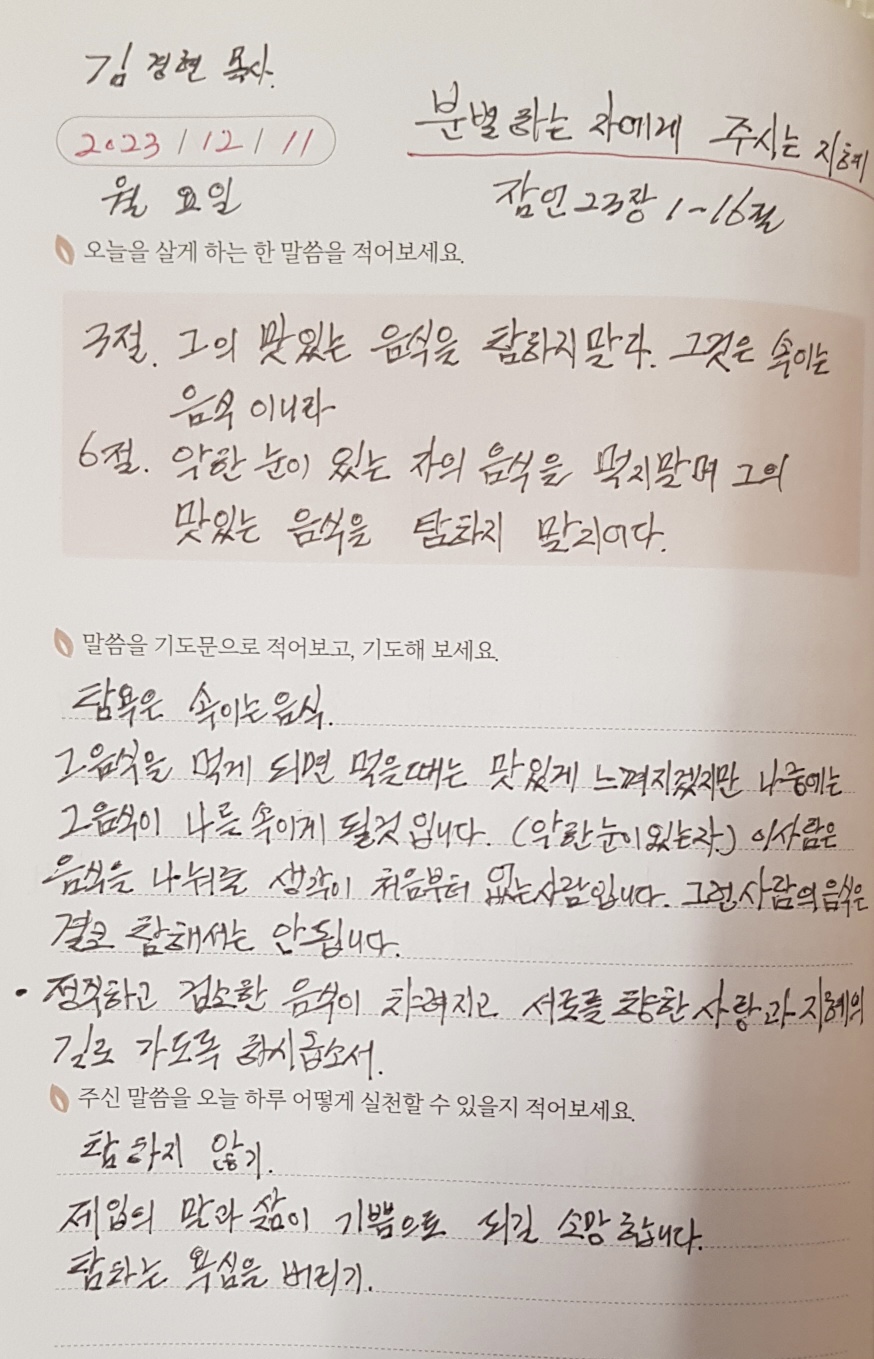 김경현 목사.
2023 / 12 / 11
분별하는 자에게 주시는 지혜
월요일
잠언 23장 1~16절
오늘을 살게 하는 한 말씀을 적어보세요.
3절. 그의 맛있는 음식을 탐하지말라. 그것은 속이는
음식이니라
6절. 악한 눈이 있는 자의 음식을 먹지말며 그의
맛있는 음식을 탐하지 말지어다.
말씀을 기도문으로 적어보고, 기도해 보세요.
탐욕은 속이는 음식.
그음식을 먹게 되면 먹을때는 맛있게 느껴지겠지만 나중에는
그음식이 나를 속이게 될것 입니다. (악한눈이있는자.) 이사람은
음식을 나눠줄 생각이 처음부터 없는사람입니다. 그런사람의음식은
결코 탐해서는 안됩니다.
• 정직하고 검소한 음식이 차려지고 서로를 향한 사랑과 지혜의
길로 가도록 하시옵소서.
주신 말씀을 오늘 하루 어떻게 실천할 수 있을지 적어보세요.
탐하지 않기.
제입의 말과 삶이 기쁨으로 되길 소망합니다.
탐하는 욕심을 버리기.